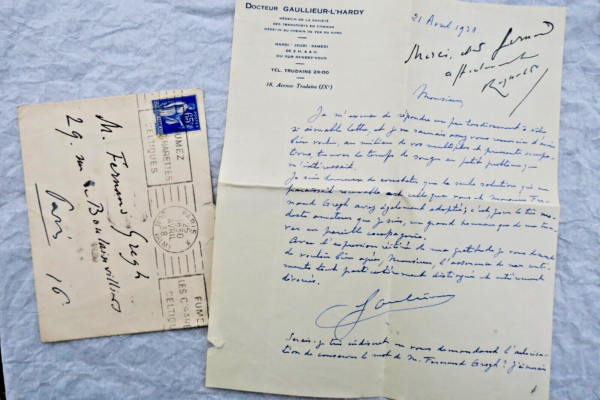 DOCTEUR GAULLIEUR-L'HARDY
MÉDECIN DE LA SOCIÉTÉ
DES TRANSPORTS EN COMMUN
MÉDECIN DU CHEMIN DE FER DU NORD
MARDI - JEUDI - SAMEDI
DE 2 H. A 4 H.
OU SUR RENDEZ-VOUS
TÉL. TRUDAINE 29-00
18, Avenue Trudaine (IXe)
21 Avril
Merci, cher Fernand
affectueusement
Monsieur,
Je m'excuse de répondre un peu tardivement à votre
si aimable lettre, et je ne saurais assez vous remercier d'avoir
bien voulu, au milieu de vos multiples et pesantes occupa-
tions trouver le temps de songer au petit problème qui
m'intéressait.
Je suis heureux de constater que la seule solution qui me
paraissait raisonnable est celle que vous et Monsieur Fer-
nand Gregh avez également adoptée; c'est pour le très mo-
deste amateur que je suis, un grand honneur que de me trou-
ver en pareille compagnie.
Avec l'expression réitérée de ma gratitude je vous demande
de vouloir bien agréer, Monsieur, l'assurance de mes senti-
ments tout particulièrement distingués et entièrement
dévoués.
Gaullieur
Serais-je très indiscret en vous demandant l'autorisa-
tion de conserver le mot de M. Fernand Gregh? J'aimerais
65c
FUMEZ
CIGARETTES
CELTIQUES
PARIS
AVRIL
FUMEZ
LES CIGARETTES
CELTIQUES
M. Fernand Gregh
29. rue de Boulainvilliers
Paris 16